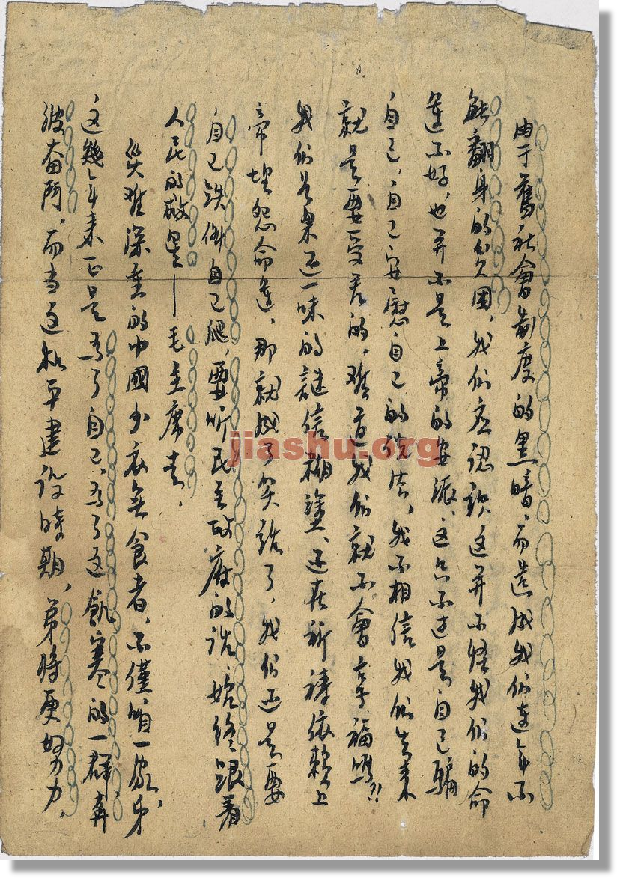 由于舊社會制度的黑暗，而造成我們連年不
能翻身的欠困，我們應認識这并不怪我們的命
運不好，也并不是上帝的安派，这只不过是自己騙
自己，自己安慰自己的説法，我不相信我們生来
就是要受苦的，难道我們就不會享福嗎?!
我們若果还一味的謎信糊塗，还在祈禱依赖上
帝埋怨命運，那就成了笑話了，我們还是要
自己跌倒自己爬，要听民主政府的話，始终跟着
人民的救星——毛主席走，
災难深重的中國少衣無食者，不僅咱一家，
这幾年来正是為了自己，為了这飢寒的一群奔
波奋鬥，而当这和平建設時期，弟將更努力，
jiashu.org